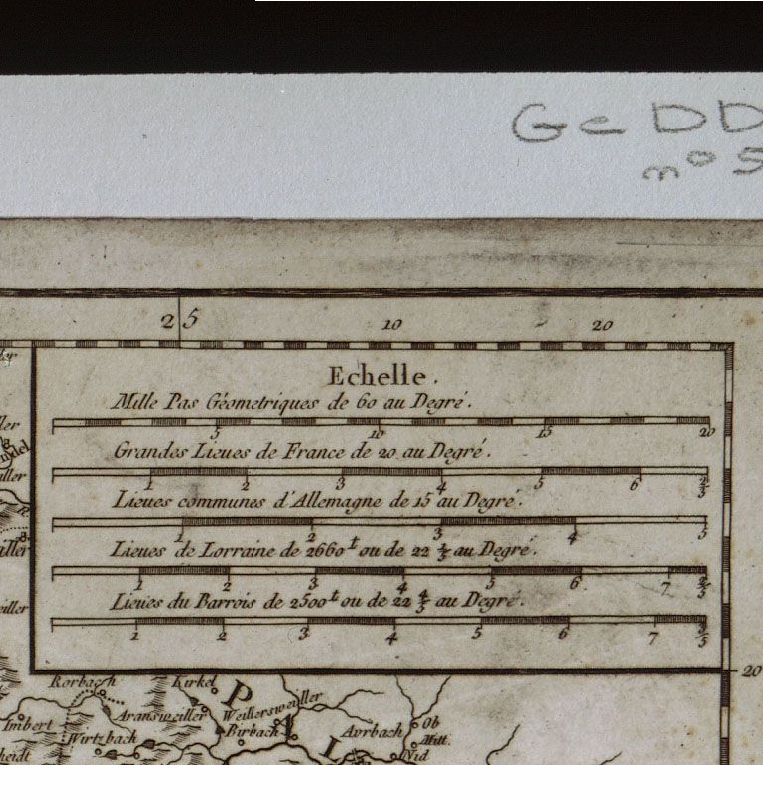 Ge DD
no 5
25 10 20
Echelle.
Mille Pas Géometriques de 60 au Degré.
5 10 15 20
Grandes Lieues de France de 20 au Degré.
1 2 3 4 5 6 2/3
Lieues communes d'Allemagne de 15 au Degré.
1 2 3 4 5
Lieues de Lorraine de 2660 t ou de 22 1/3 au Degré.
1 2 3 4 5 6 7
Lieues du Barrois de 2500 t ou de 22 4/5 au Degré.
1 2 3 4 5 6 7 3/5
20
Rorbach Kirkel
P
Weillersweiller
Aransweiller
Imbert
Wirtzbach
Birbach
Avrbach
Ob
Mitt.
Nid
heidt
A
L